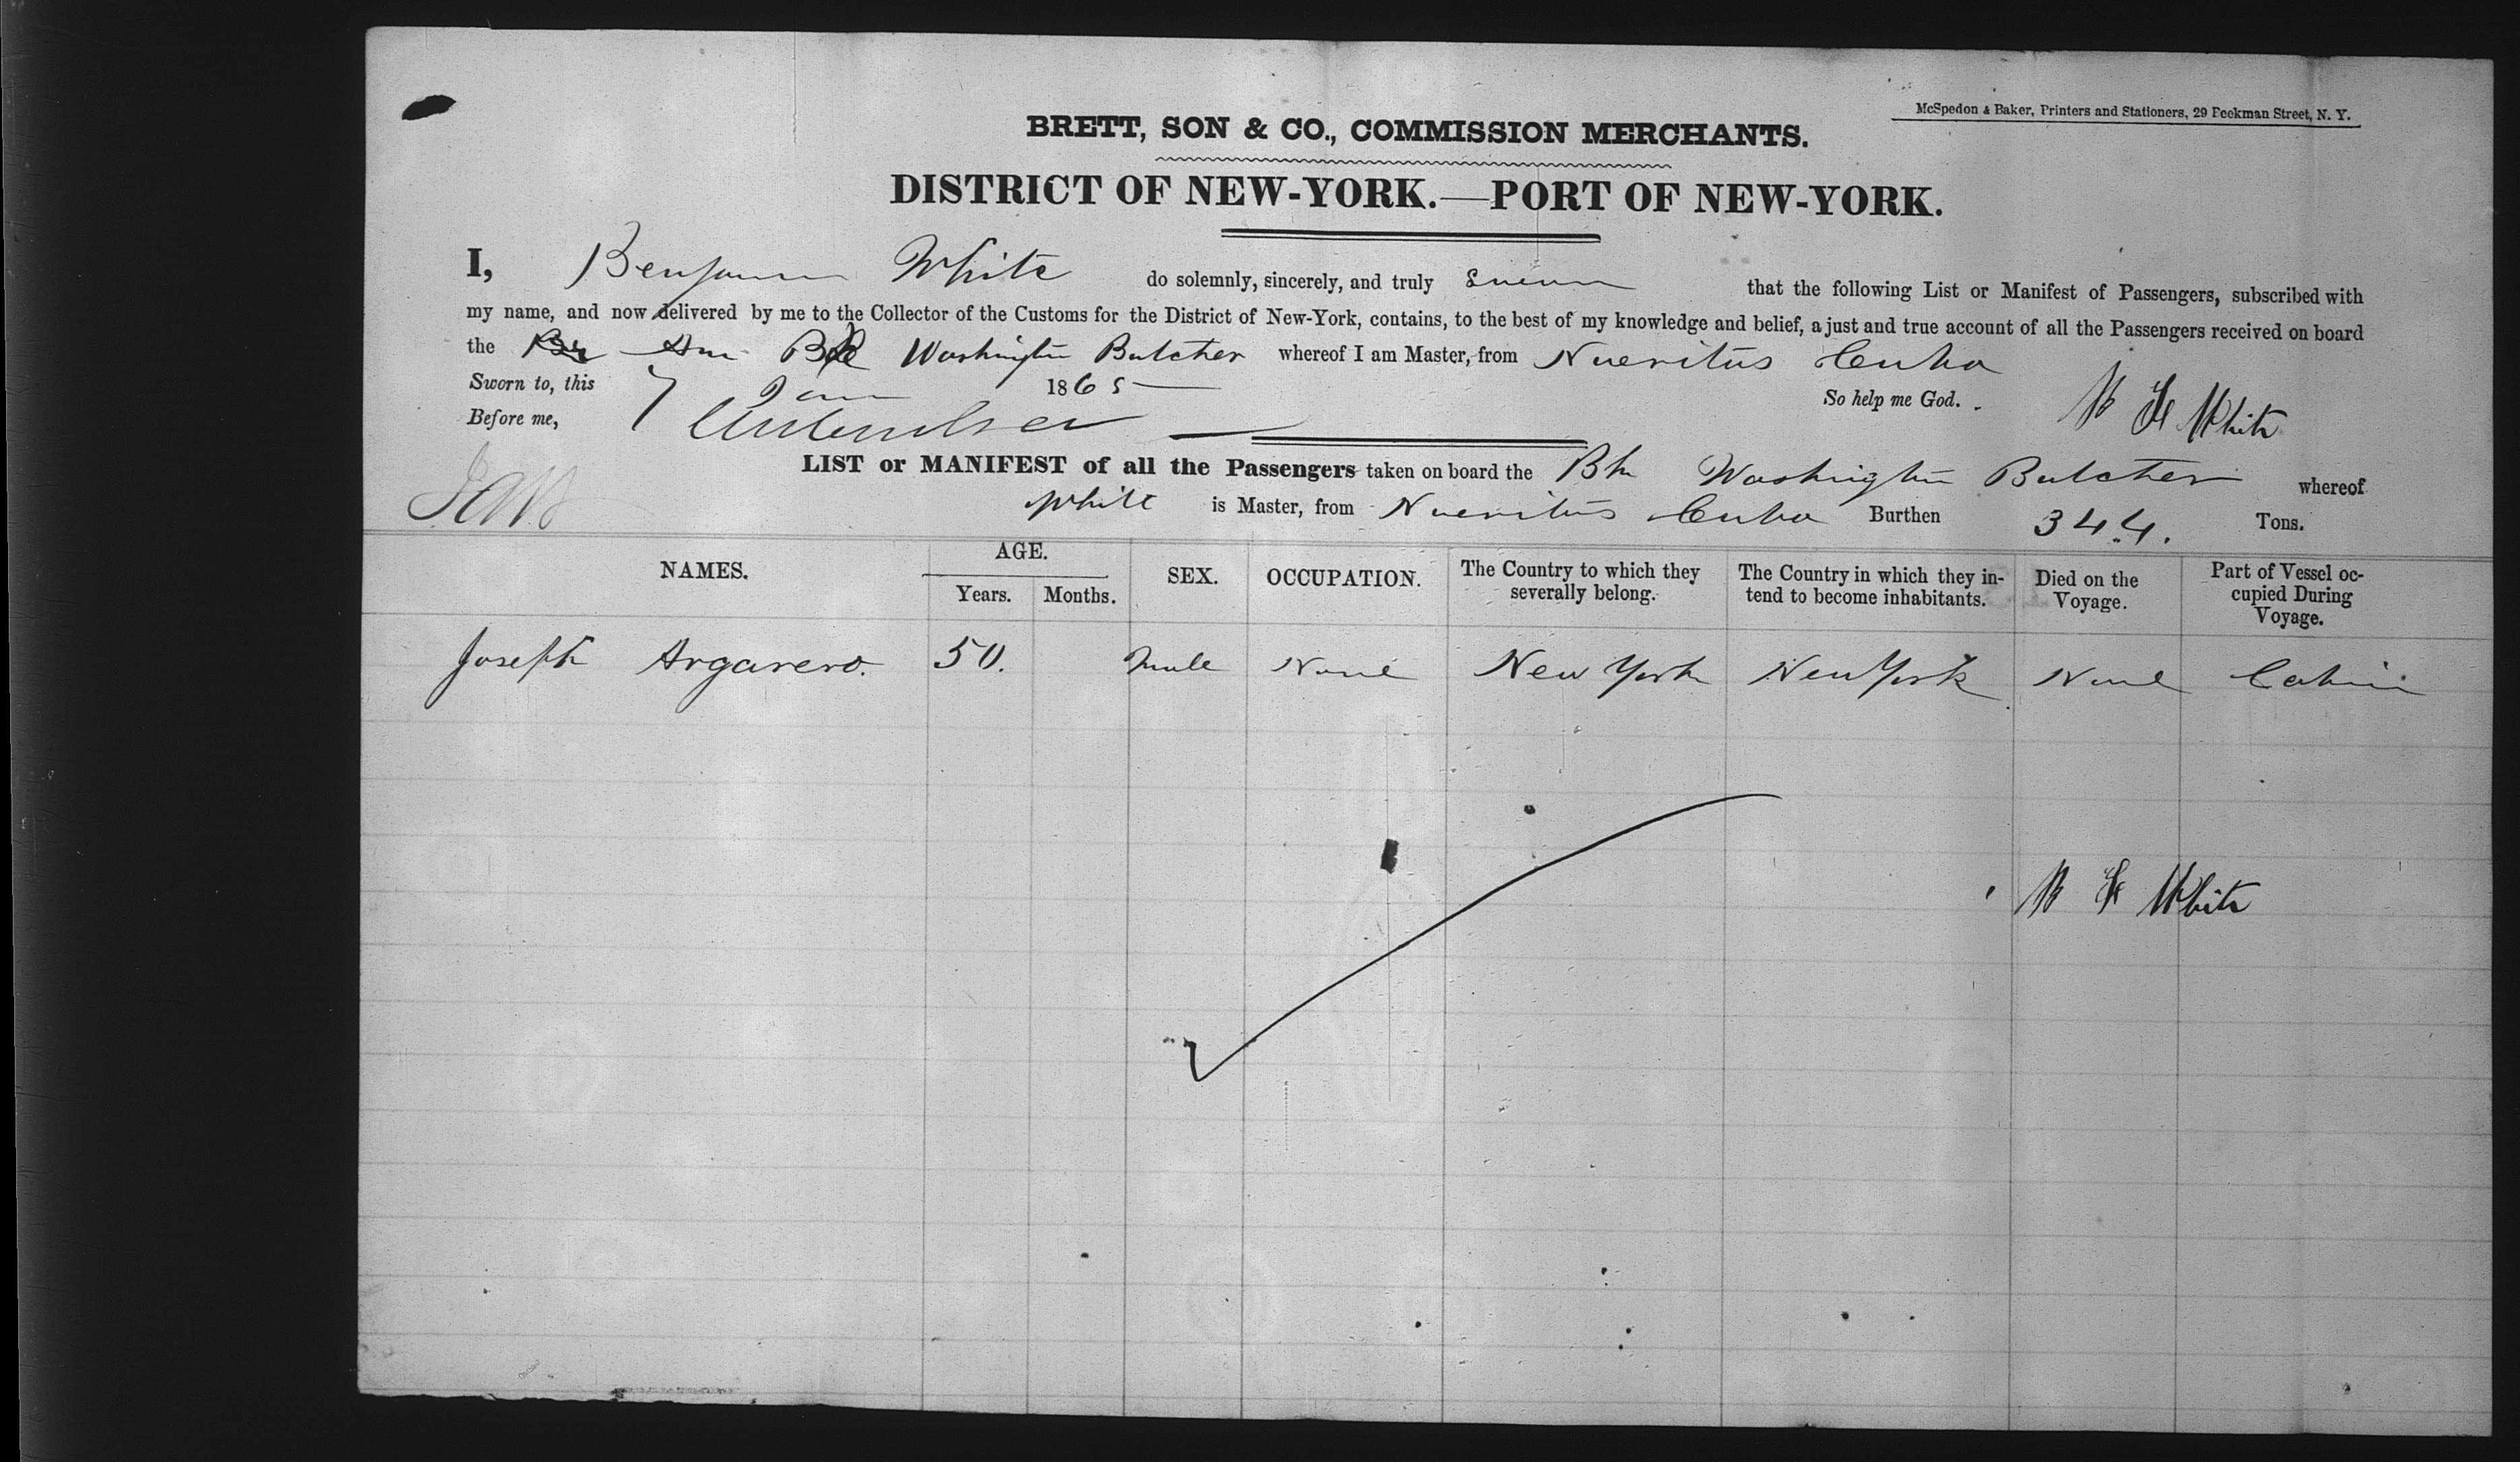 McSpedon & Baker, Printers and Stationers, 29 Beekman Street, N. Y.
BRETT, SON & CO., COMMISSION MERCHANTS.
DISTRICT OF NEW-YORK.—PORT OF NEW-YORK.
I, Benjamin White do solemnly, sincerely, and truly swear that the following List or Manifest of Passengers, subscribed with
my name, and now delivered by me to the Collector of the Customs for the District of New-York, contains, to the best of my knowledge and belief, a just and true account of all the Passengers received on board
the Am Washington Butcher whereof I am Master, from Nuevitus Cuba
Sworn to, this 7 Jan 1865 So help me God. B F White
Before me,
LIST or MANIFEST of all the Passengers taken on board the Bk Washington Butcher whereof
White is Master, from Nuevitus Cuba Burthen 344. Tons.
NAMES. AGE. Years. Months. SEX. OCCUPATION. The Country to which they severally belong. The Country in which they intend to become inhabitants. Died on the Voyage. Part of Vessel occupied During Voyage.
Joseph Argarero. 50. Male None New York New York None Cabin
B F White